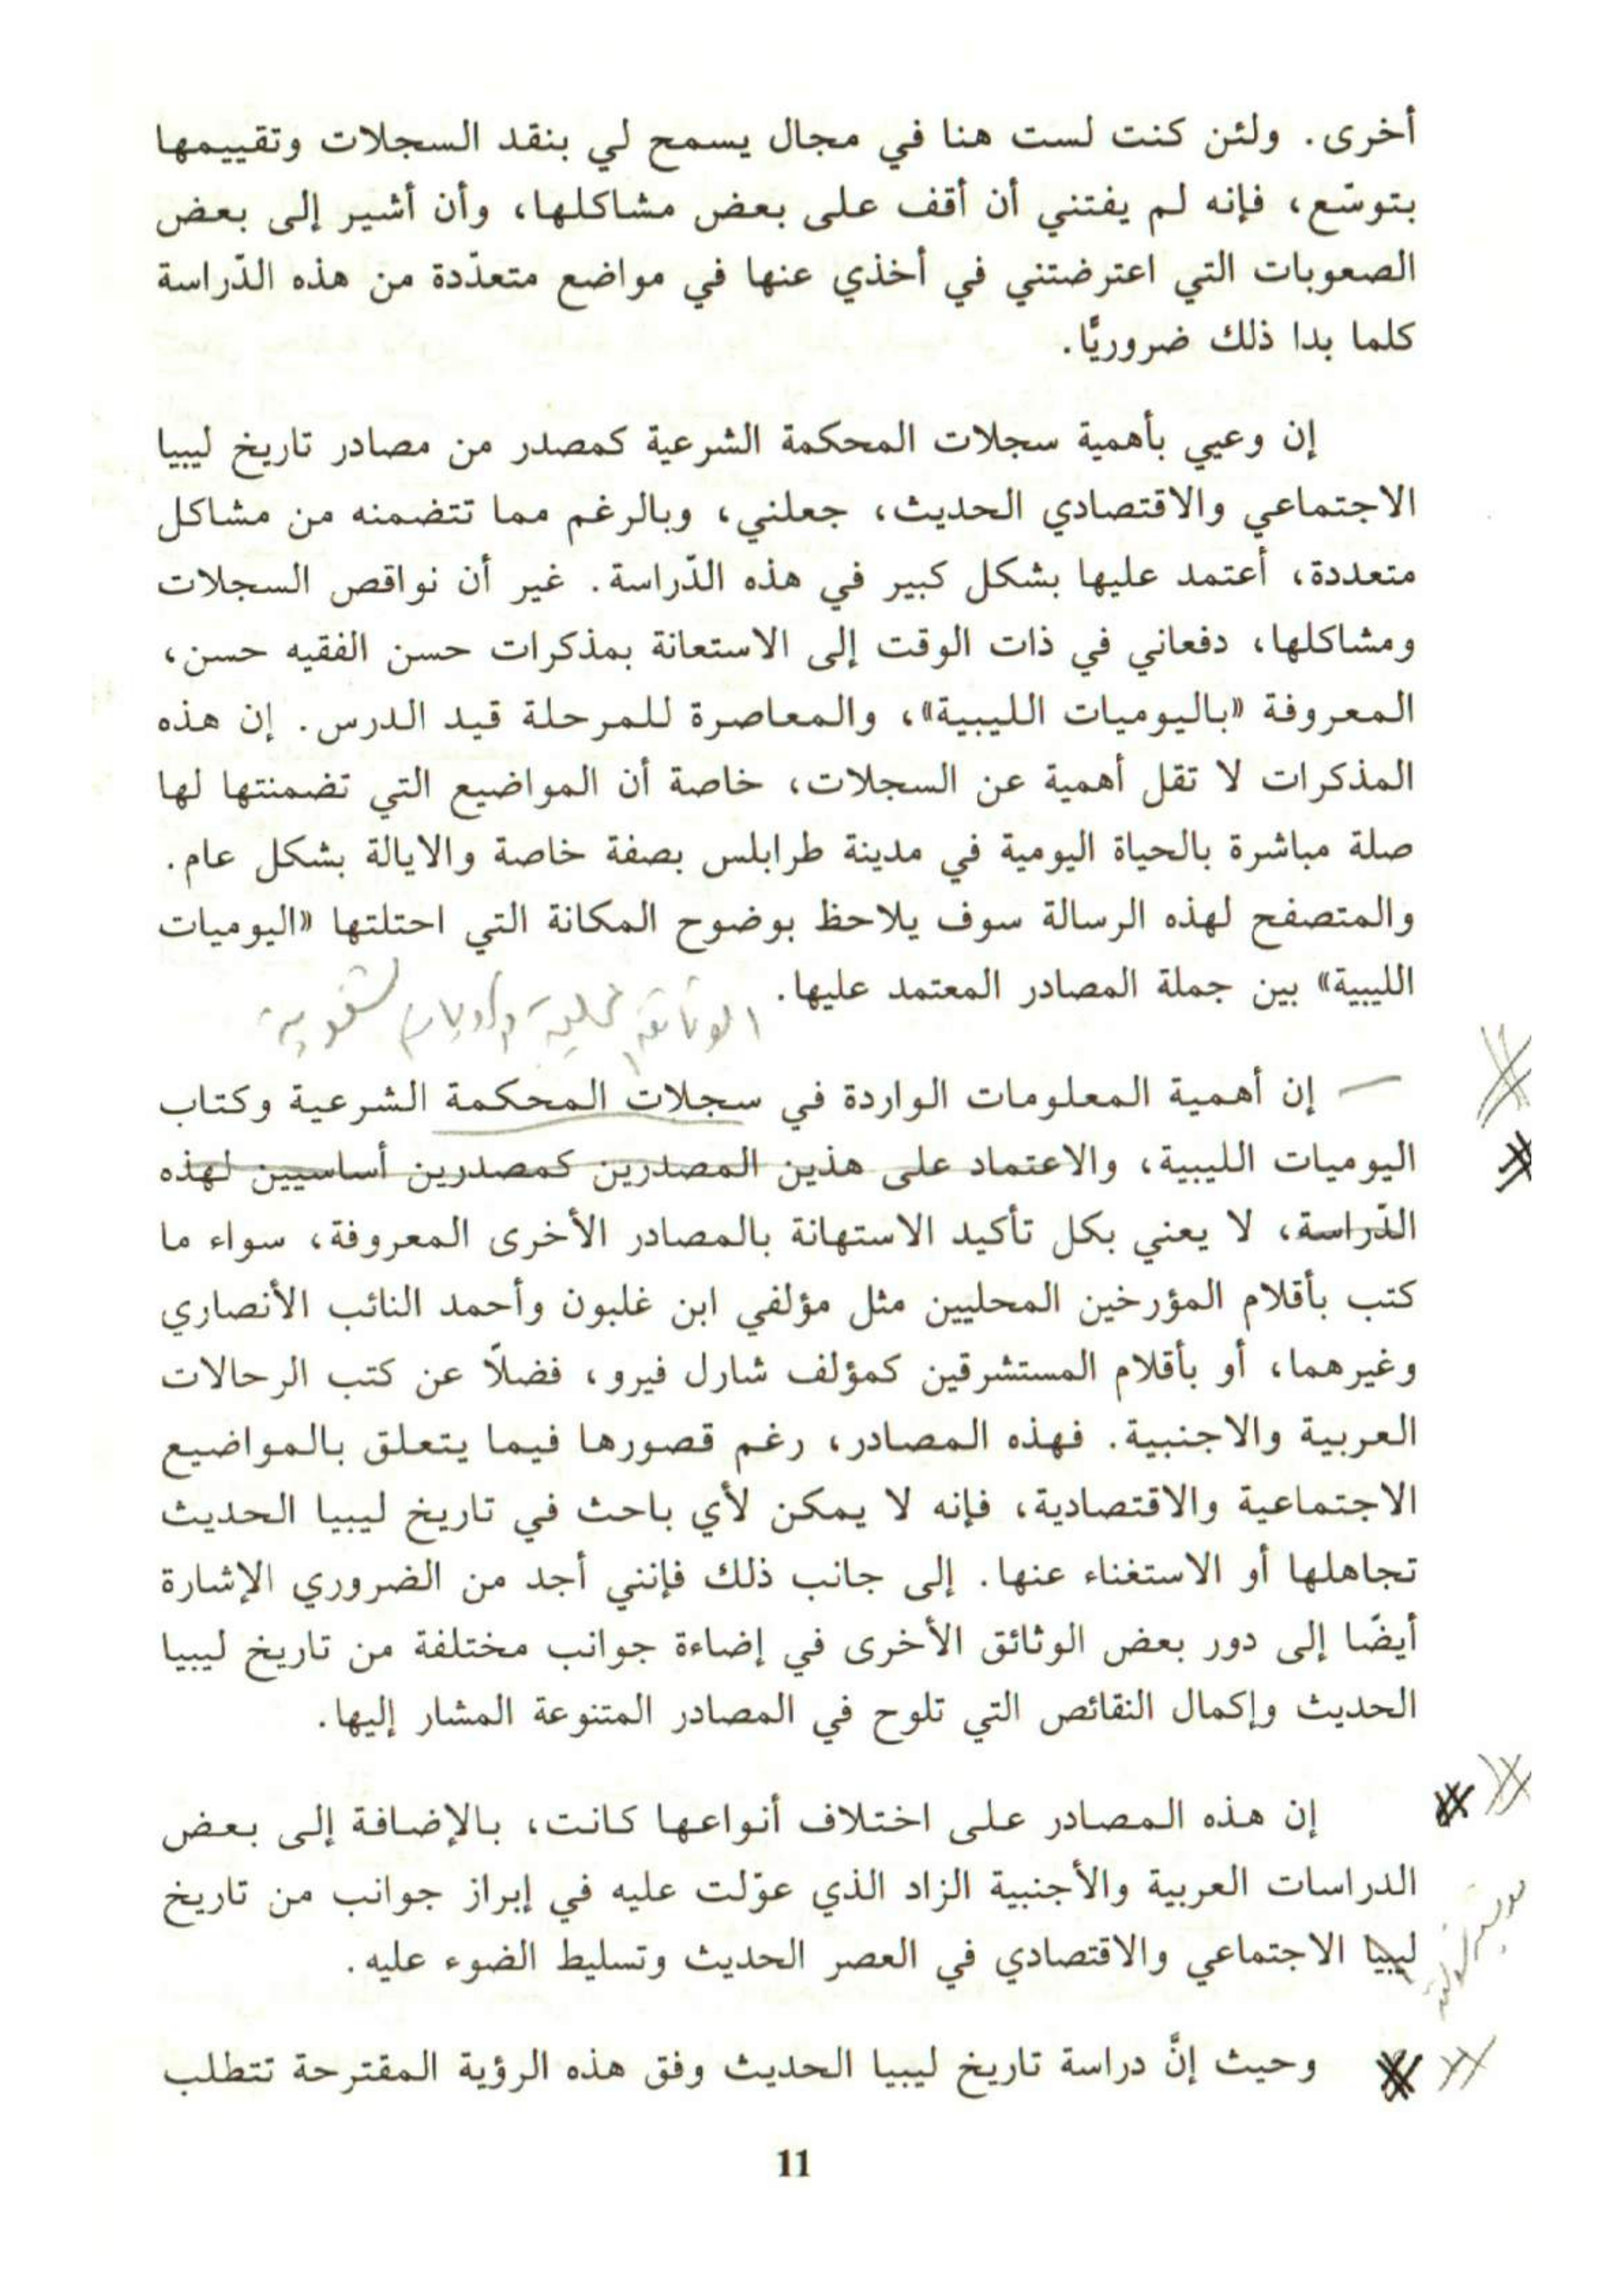 أخرى. ولئن كنت لست هنا في مجال يسمح لي بنقد السجلات وتقييمها
بتوسّع، فإنه لم يفتني أن أقف على بعض مشاكلها، وأن أشير إلى بعض
الصعوبات التي اعترضتني في أخذي عنها في مواضع متعدّدة من هذه الدّراسة
كلما بدا ذلك ضروريًّا.
إن وعيي بأهمية سجلات المحكمة الشرعية كمصدر من مصادر تاريخ ليبيا
الاجتماعي والاقتصادي الحديث، جعلني، وبالرغم مما تتضمنه من مشاكل
متعددة، أعتمد عليها بشكل كبير في هذه الدّراسة. غير أن نواقص السجلات
ومشاكلها، دفعاني في ذات الوقت إلى الاستعانة بمذكرات حسن الفقيه حسن،
المعروفة «باليوميات الليبية»، والمعاصرة للمرحلة قيد الدرس. إن هذه
المذكرات لا تقل أهمية عن السجلات، خاصة أن المواضيع التي تضمنتها لها
صلة مباشرة بالحياة اليومية في مدينة طرابلس بصفة خاصة والايالة بشكل عام.
والمتصفح لهذه الرسالة سوف يلاحظ بوضوح المكانة التي احتلتها «اليوميات
الليبية» بين جملة المصادر المعتمد عليها.
إن أهمية المعلومات الواردة في سجلات المحكمة الشرعية وكتاب
اليوميات الليبية، والاعتماد على هذين المصدرين كمصدرين أساسيين لهذه
الدّراسة، لا يعني بكل تأكيد الاستهانة بالمصادر الأخرى المعروفة، سواء ما
كتب بأقلام المؤرخين المحليين مثل مؤلفي ابن غلبون وأحمد النائب الأنصاري
وغيرهما، أو بأقلام المستشرقين كمؤلف شارل فيرو، فضلاً عن كتب الرحالات
العربية والاجنبية. فهذه المصادر، رغم قصورها فيما يتعلق بالمواضيع
الاجتماعية والاقتصادية، فإنه لا يمكن لأي باحث في تاريخ ليبيا الحديث
تجاهلها أو الاستغناء عنها. إلى جانب ذلك فإنني أجد من الضروري الإشارة
أيضًا إلى دور بعض الوثائق الأخرى في إضاءة جوانب مختلفة من تاريخ ليبيا
الحديث وإكمال النقائص التي تلوح في المصادر المتنوعة المشار إليها.
إن هذه المصادر على اختلاف أنواعها كانت، بالإضافة إلى بعض
الدراسات العربية والأجنبية الزاد الذي عوّلت عليه في إبراز جوانب من تاريخ
ليبيا الاجتماعي والاقتصادي في العصر الحديث وتسليط الضوء عليه.
وحيث إنَّ دراسة تاريخ ليبيا الحديث وفق هذه الرؤية المقترحة تتطلب
11